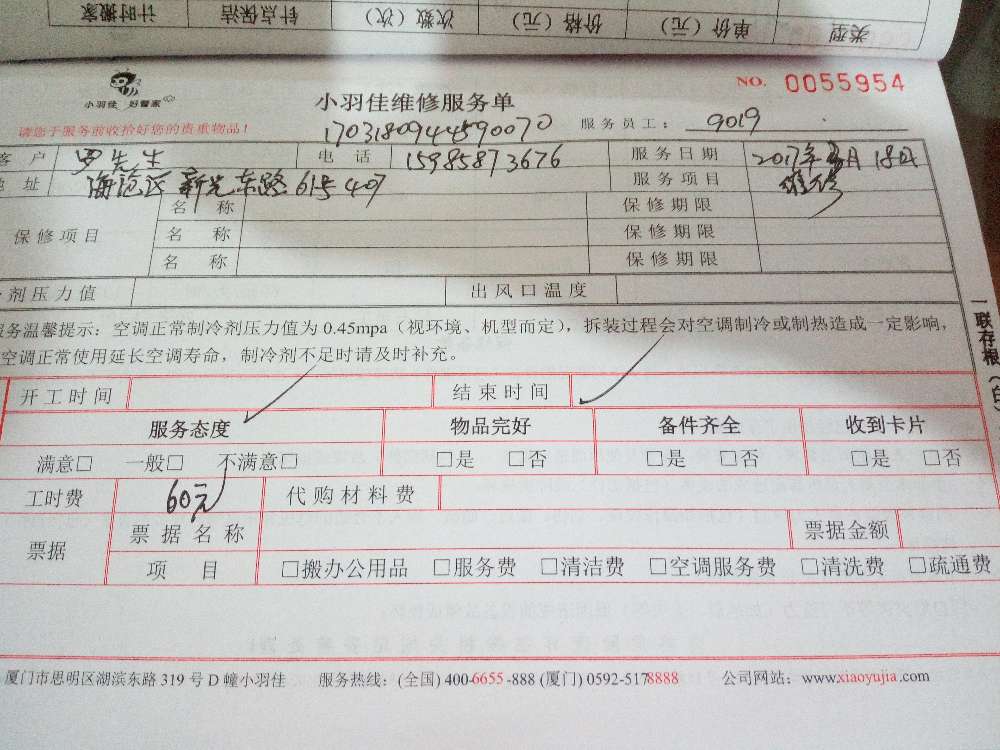 类型 单价（元） 价格（元） 次数（次） 针点保洁 计时搬家
小羽佳 好管家
NO. 0055954
小羽佳维修服务单
请您于服务前收拾好您的贵重物品！
1703180944590070 服务员工： 9019
客 户 罗先生 电 话 15985873676 服务日期 2017年3月18日
地 址 海沧区新光东路615 407 服务项目 维修
保修项目 名 称 保修期限
名 称 保修期限
名 称 保修期限
剂压力值 出风口温度
服务温馨提示：空调正常制冷剂压力值为 0.45mpa（视环境、机型而定），拆装过程会对空调制冷或制热造成一定影响，
空调正常使用延长空调寿命，制冷剂不足时请及时补充。
一联存根（白
开工时间 结束时间
服务态度 物品完好 备件齐全 收到卡片
满意□ 一般□ 不满意□ □是 □否 □是 □否 □是 □否
工时费 60元 代购材料费
票据 票据名称 票据金额
项 目 □搬办公用品 □服务费 □清洁费 □空调服务费 □清洗费 □疏通费
厦门市思明区湖滨东路 319 号 D 幢小羽佳 服务热线：(全国) 400-6655-888 (厦门) 0592-5178888 公司网站：www.xiaoyujia.com